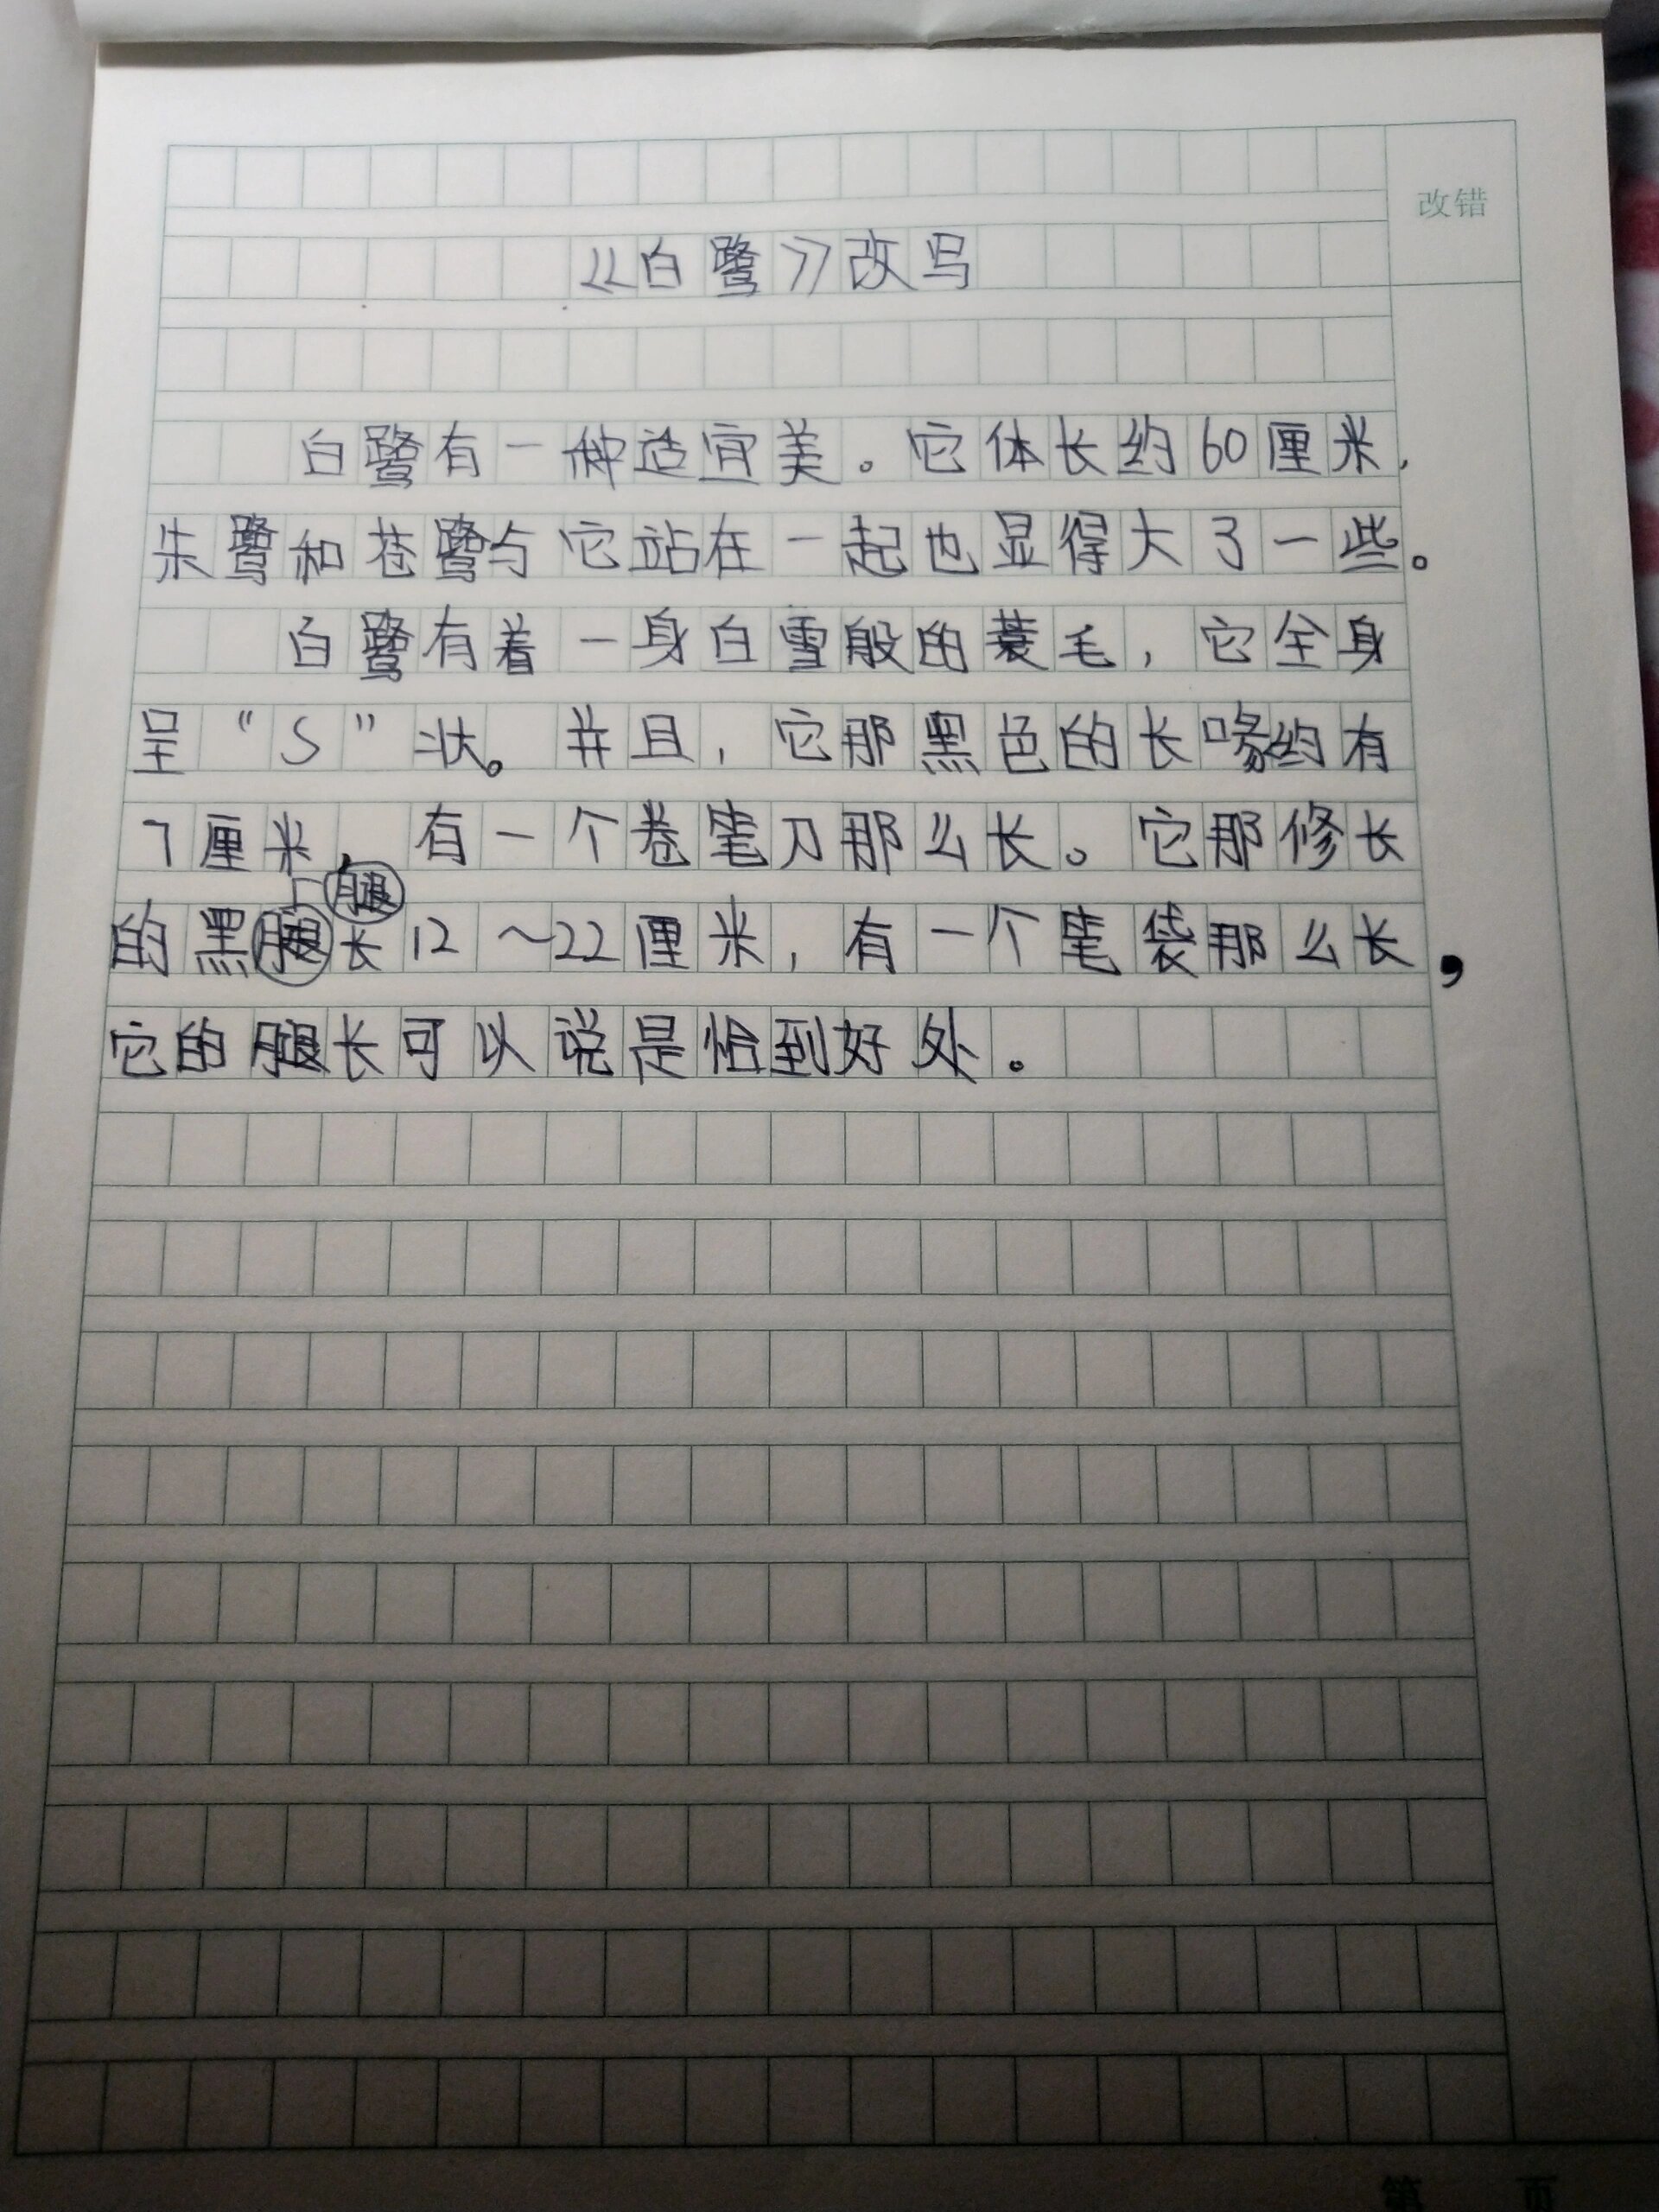 改错
《白鹭》改写
白鹭有一种适宜美。它体长约60厘米,
朱鹭和苍鹭与它站在一起也显得大了一些。
白鹭有着一身白雪般的蓑毛,它全身
呈“S”状。并且,它那黑色的长喙约有
7厘米,有一个卷笔刀那么长。它那修长
的黑腿长12~22厘米,有一个笔袋那么长,
它的腿长可以说是恰到好处。
第 页